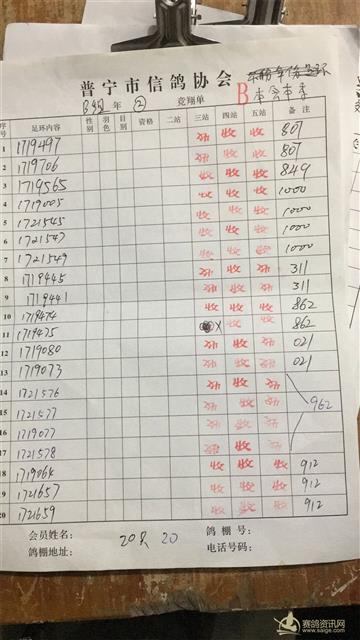 普宁市信鸽协会
B 本会本季
B组 年 ② 竞翔单
序号 足环内容 性别 羽色 目别 资格 二站 三站 四站 五站 备注
1 1719497 收 收 807
2 1719706 收 收 收 807
3 1719565 收 收 收 849
4 1719005 收 收 收 1000
5 1721545 收 收 收 1000
6 1721547 收 收 收 1000
7 1721549 收 收 1000
8 1719445 收 311
9 1719441 收 311
10 1719474 收 收 收 862
11 1719475 X 收 收 862
12 1719080 收 021
13 1719073 收 021
14 1721576 收
15 1721577 962
16 1719077
17 1721578 收
18 171906 收 收 收 912
19 1721657 收 收 收 912
20 1721659 收 912
会员姓名: 20R 20 鸽棚号:
鸽棚地址: 电话号码:
赛鸽资讯网
www.saige.com